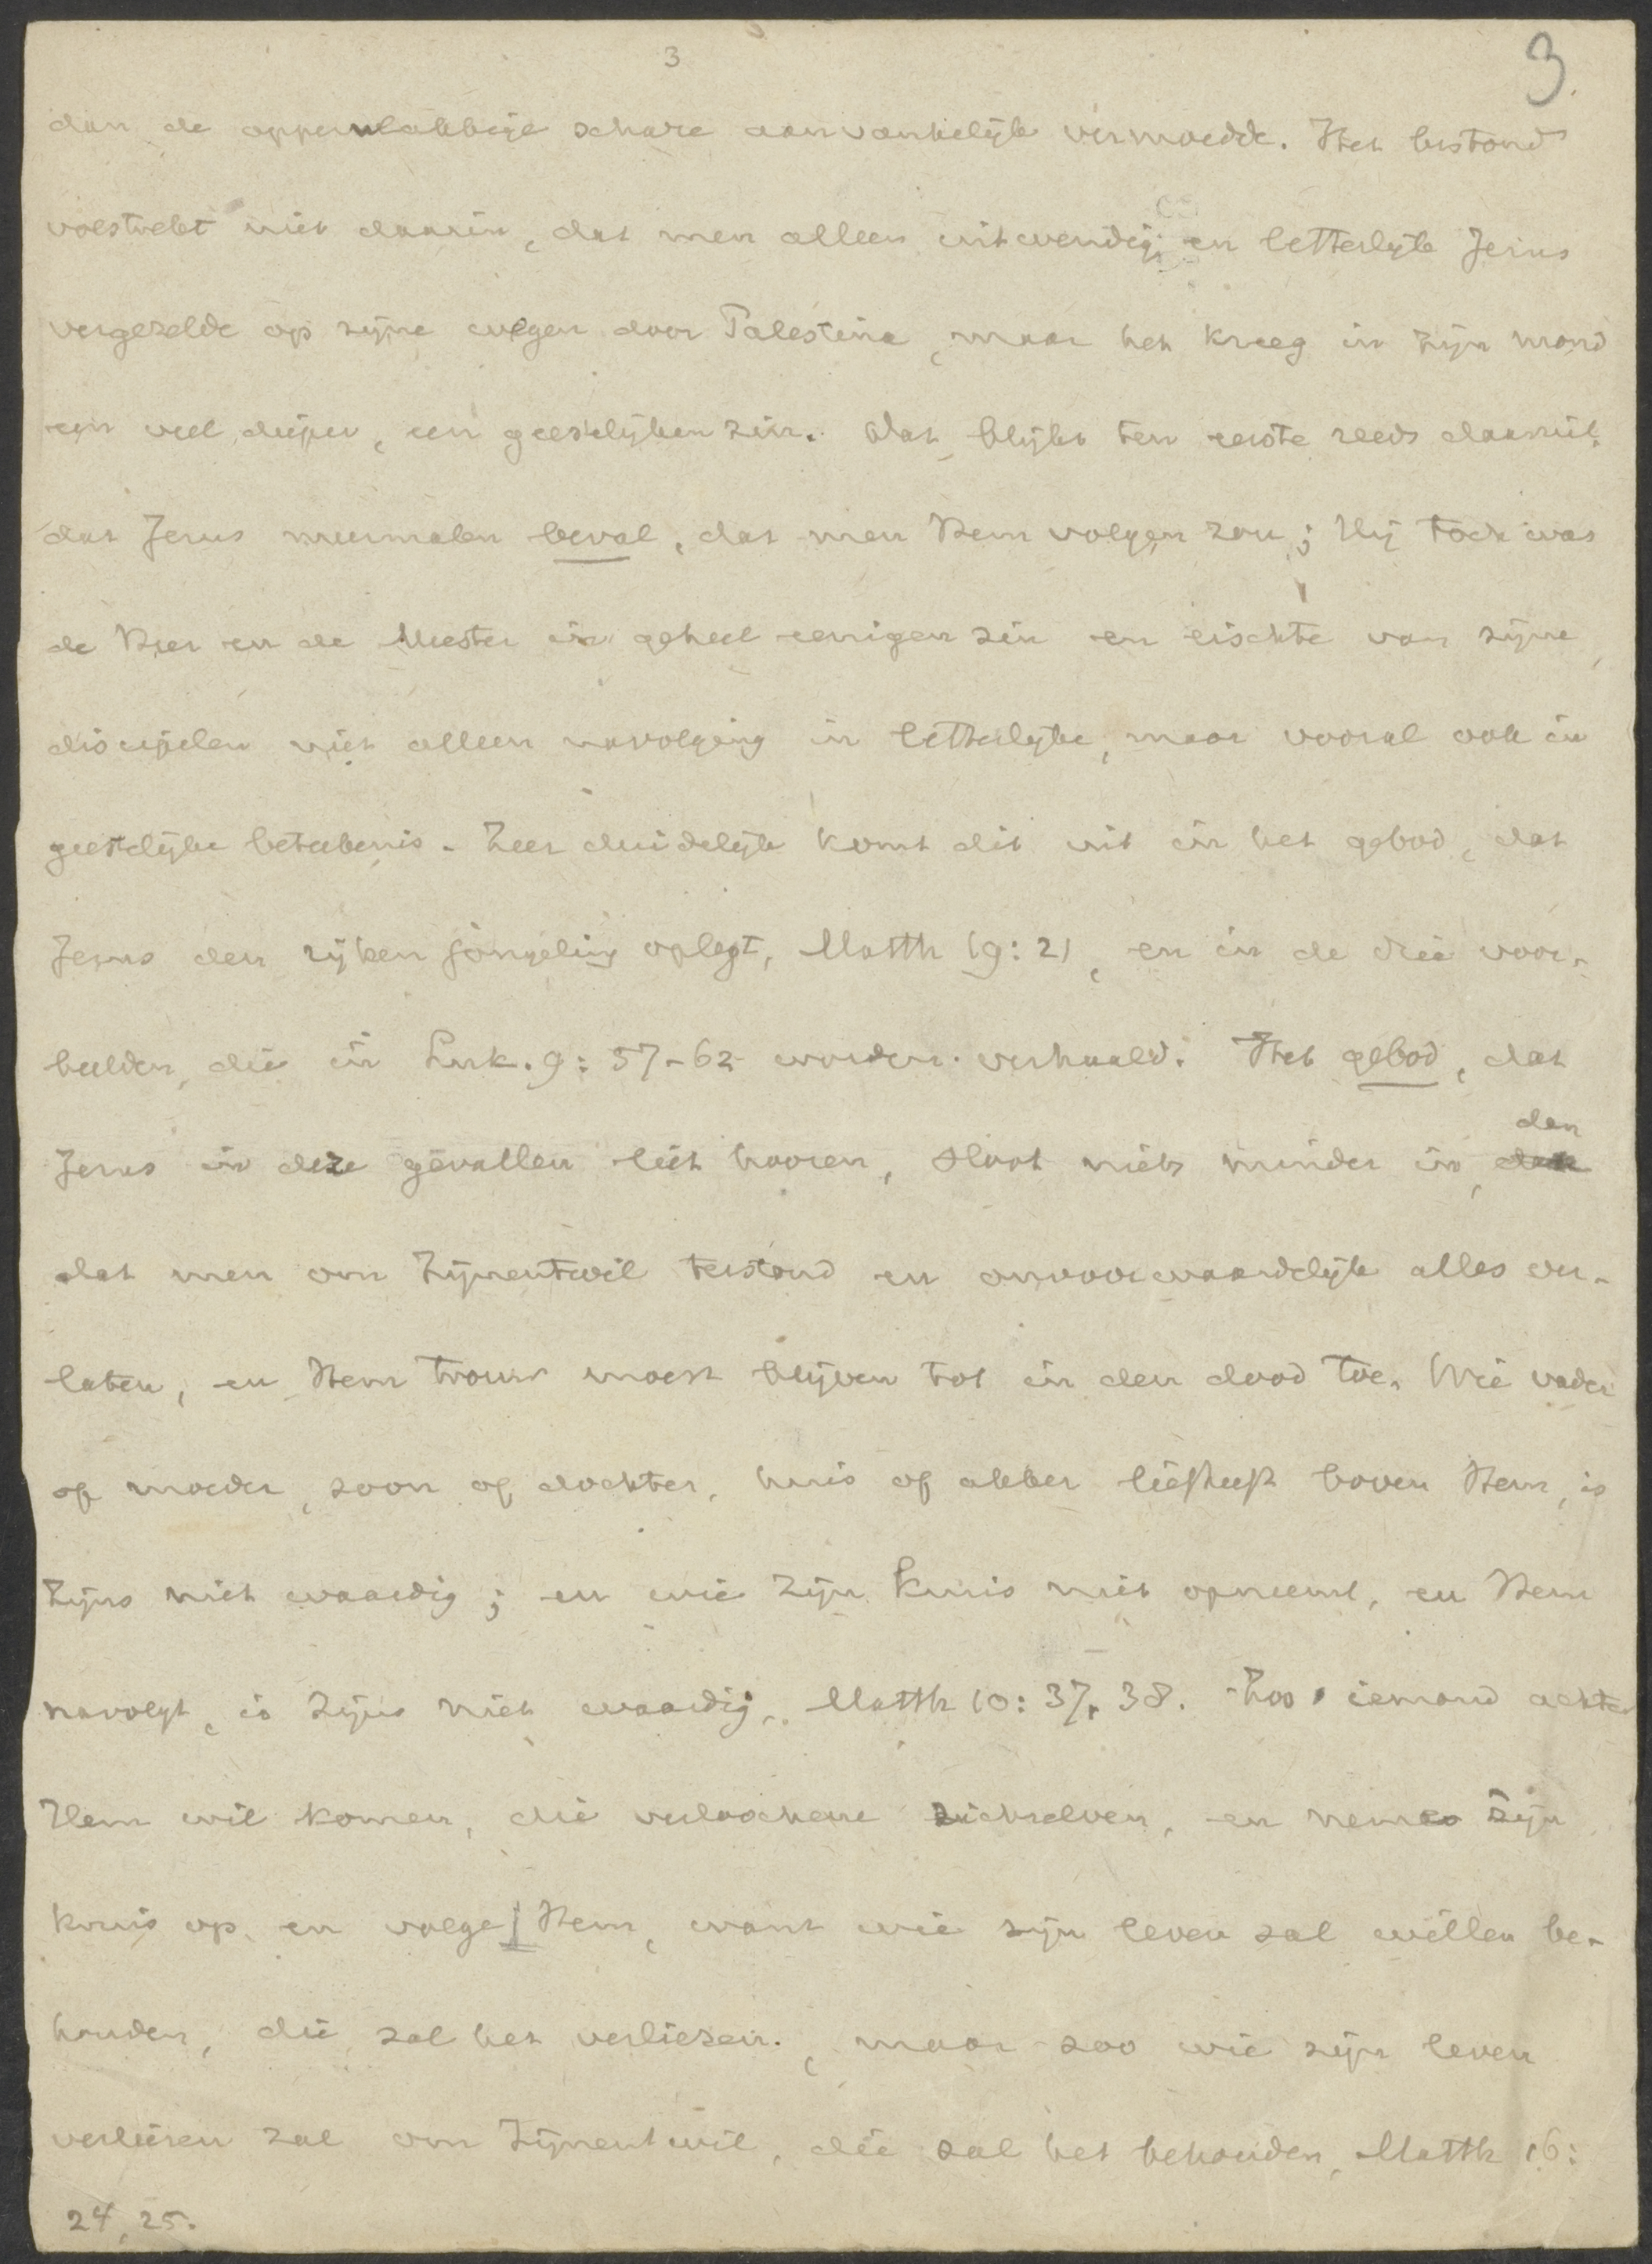 3
3.
dan de oppervlakkige schare aanvankelijk vermoedde. Het bestond
volstrekt niet daarin, dat men alleen uitwendig en letterlijk Jezus
vergezelde op zijne wegen door Palestina, maar het kreeg in Zijn mond
een veel dieper, een geestelijken zin. Dat blijkt ten eerste reeds daaruit,
dat Jezus meermalen beval, dat men Hem volgen zou; Hij toch was
de Heer en de Meester in geheel eenigen zin en eischte van zijne
discipelen niet alleen navolging in letterlijke, maar vooral ook in
geestelijke beteekenis. Zeer duidelijk komt dit uit in het gebod, dat
Jezus den rijken jongeling oplegt, Matth 19:21, en in de drie voor-
beelden, die in Luk. 9:57-62 worden verhaald. Het gebod, dat
Jezus in deze gevallen liet hooren, sloot niets minder in, dan
dat men om Zijnentwil terstond en onvoorwaardelijk alles ver-
laten, en Hem trouw moest blijven tot in den dood toe. Wie vader
of moeder, zoon of dochter, huis of akker liefheeft boven Hem, is
Zijns niet waardig; en wie zijn kruis niet opneemt, en Hem
navolgt, is Zijns niet waardig, Matth 10:37, 38. Zoo iemand achter
Hem wil komen, die verloochene zichzelven, en neme zijn
kruis op en volge Hem, want wie zijn leven zal willen be-
houden, die zal het verliezen, maar zoo wie zijn leven
verliezen zal om Zijnentwil, die zal het behouden, Matth 16:
24, 25.